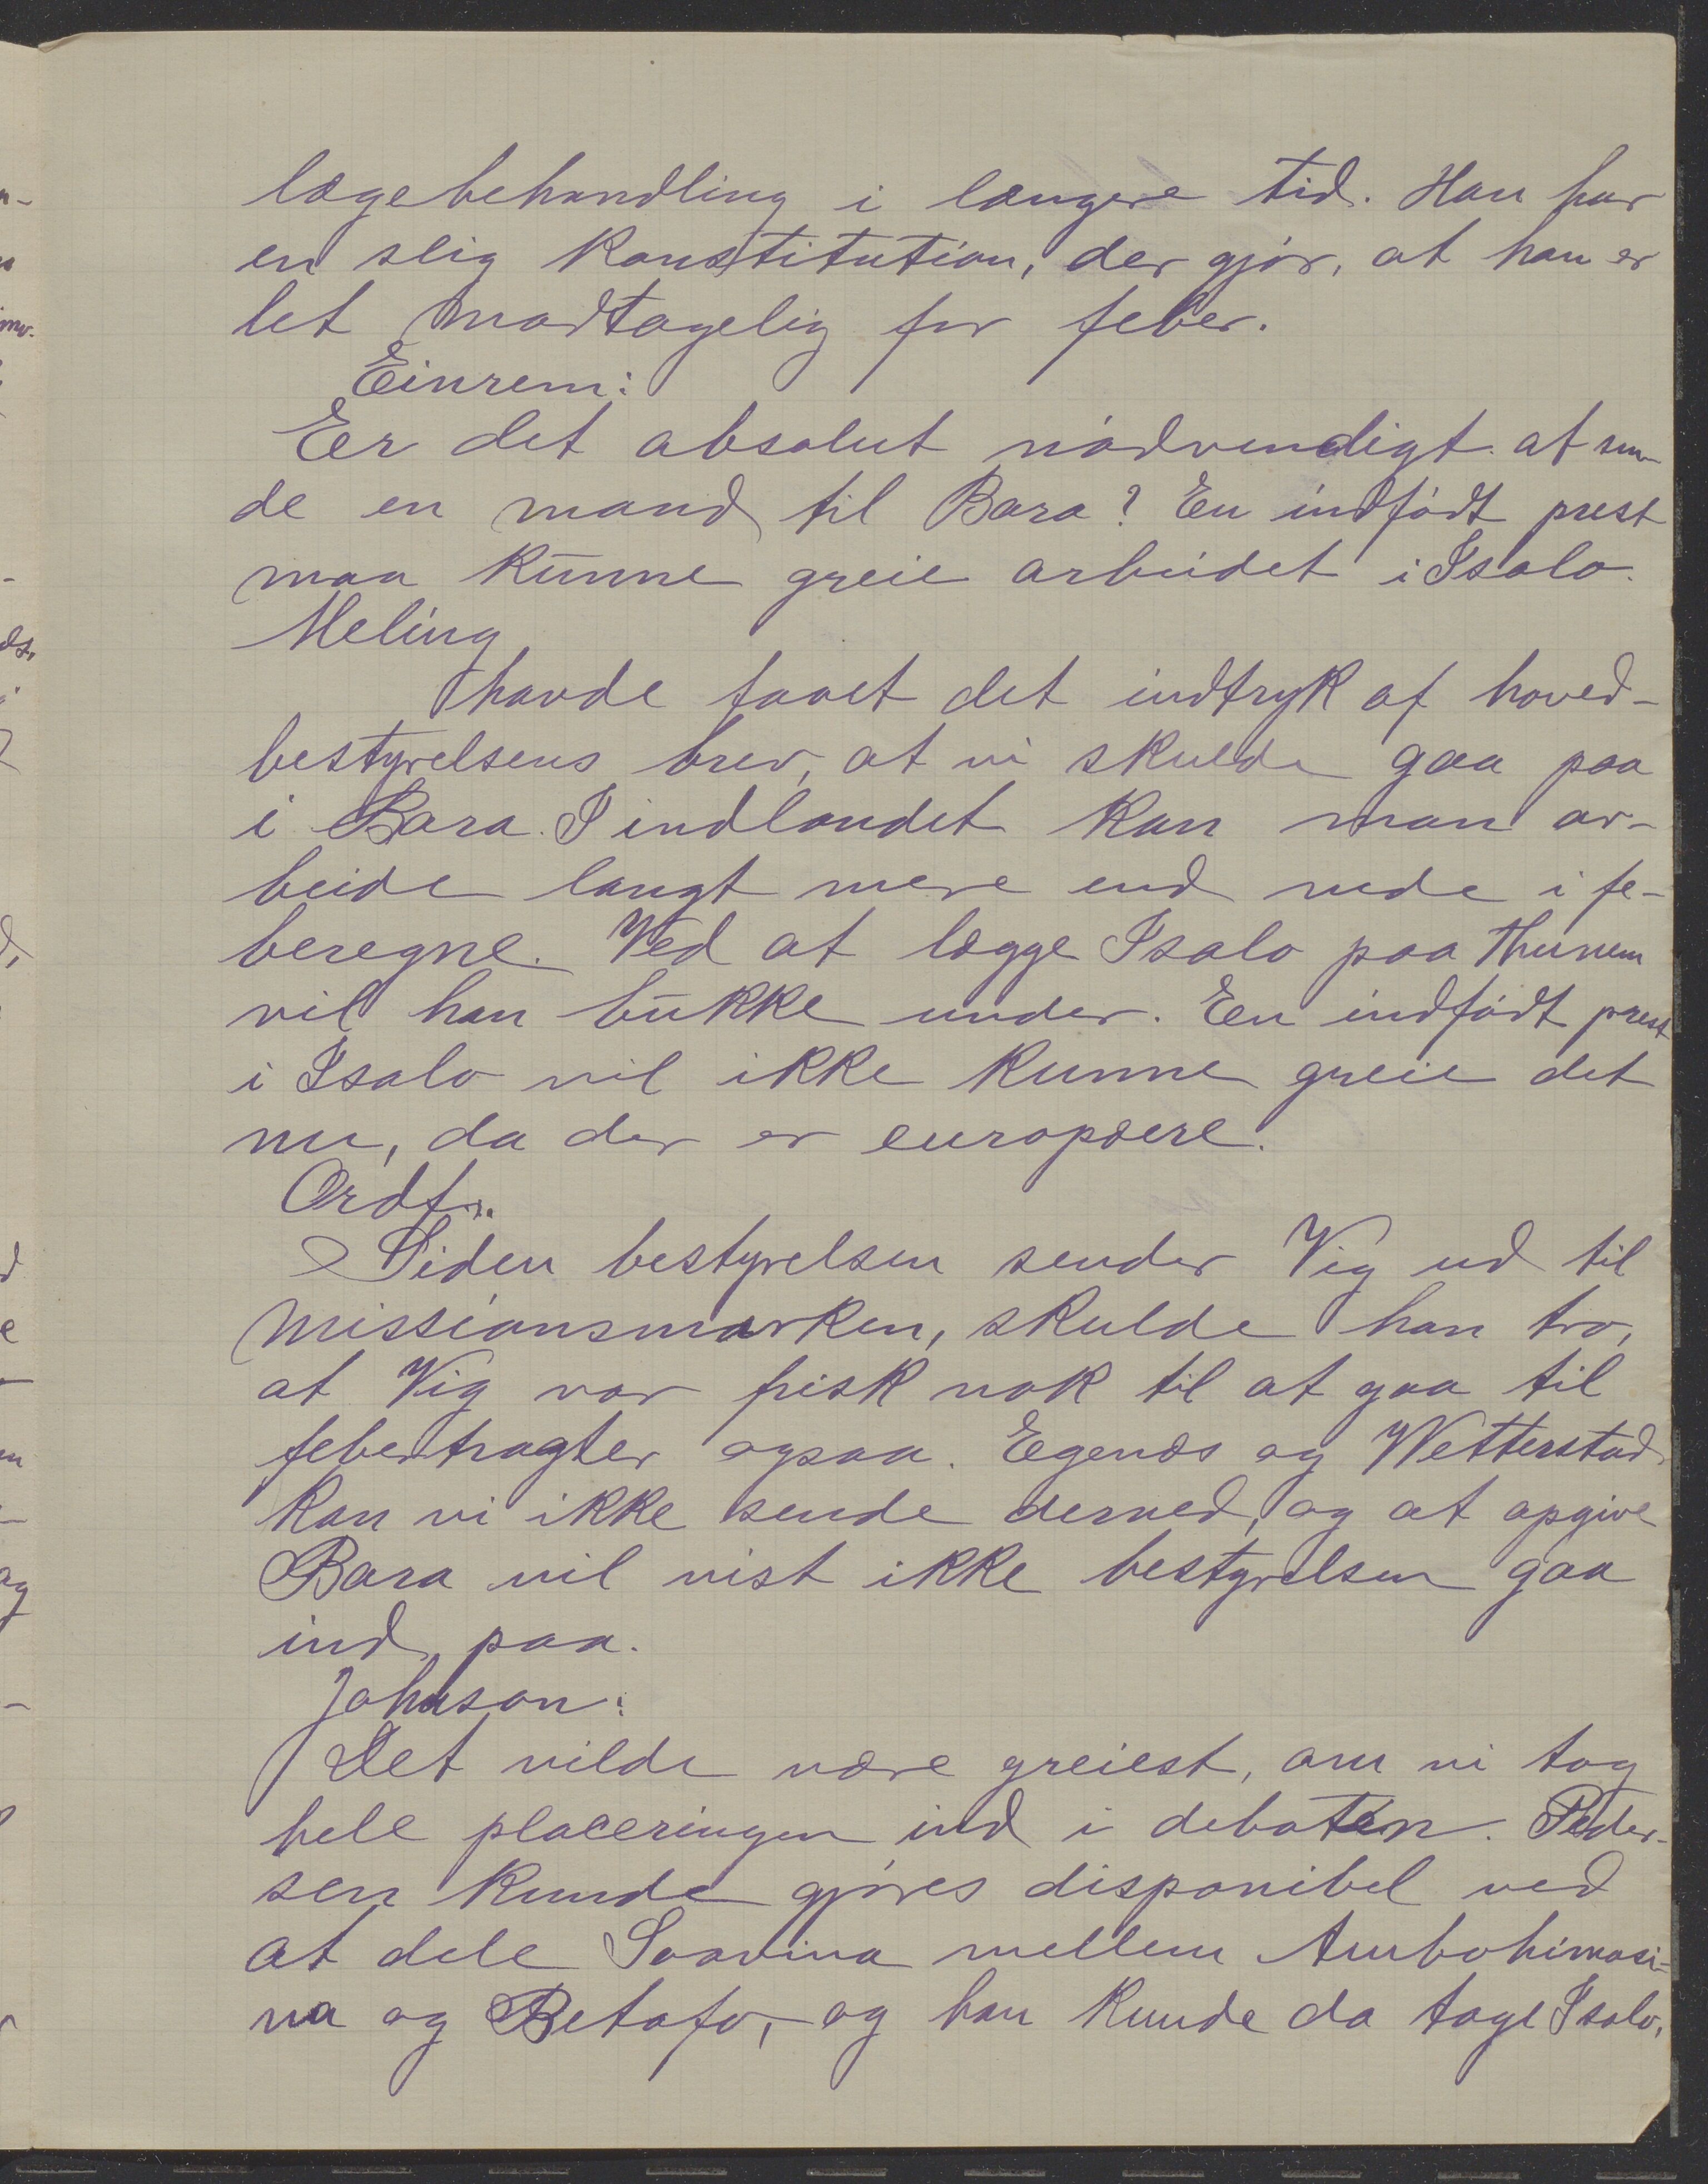 lægebehandling i længere tid. Han har
en slig konstitution, der gjør, at han er
let modtagelig for feber.
Einrem:
Er det absolut nødvendigt at sen-
de en mand til Bara? En indfødt prest
maa kunne greie arbeidet i Isalo.
Meling
havde faaet det indtryk af hoved-
bestyrelsens brev, at vi skulde gaa paa
i Bara. I indlandet kan man ar-
beide langt mere end nede i fe-
beregne. Ved at lægge Isalo paa Thunem
vil han bukke under. En indfødt prest
i Isalo vil ikke kunne greie det
nu, da der er europæere.
Ordf.:
Siden bestyrelsen sender Vig ud til
missionsmarken, skulde han tro,
at Vig var frisk nok til at gaa til
febertragter ogsaa. Egenæs og Wetterstad
kan vi ikke sende derned, og at opgive
Bara vil vist ikke bestyrelsen gaa
ind paa.
Johnson:
Det vilde være greiest, om vi tog
hele placeringen ind i debaten. Peder-
sen kunde gjøres disponibel ved
at dele Soavina mellem Ambohimasi-
na og Betafo, og han kunde da tage Isalo,